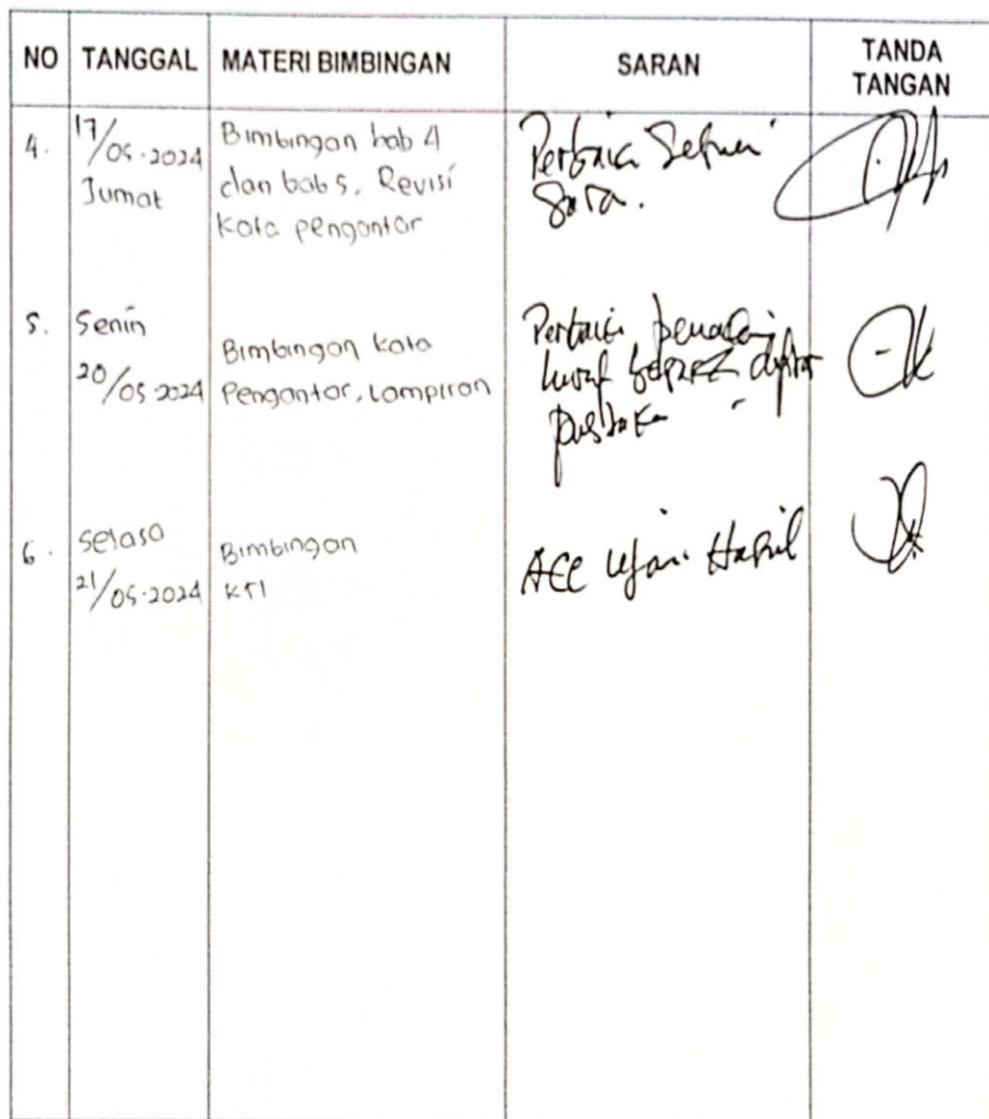 NO TANGGAL MATERI BIMBINGAN SARAN TANDA TANGAN
4.
17/05-2024
Jumat
Bimbingan bab 4
dan bab 5. Revisi
Kata pengantar
Perbaiki Sesuai
Saran.
5.
Senin
20/05-2024
Bimbingan kata
Pengantar, Lampiran
Perbaiki
huruf daftar
pustaka
6.
Selasa
21/05-2024
Bimbingan
KTI
ACC Ujian Hasil